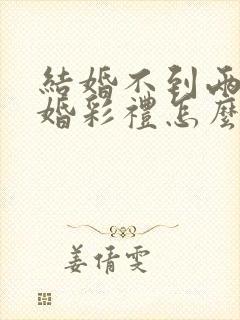 結婚不到兩
婚彩禮怎麼
姜倩雯